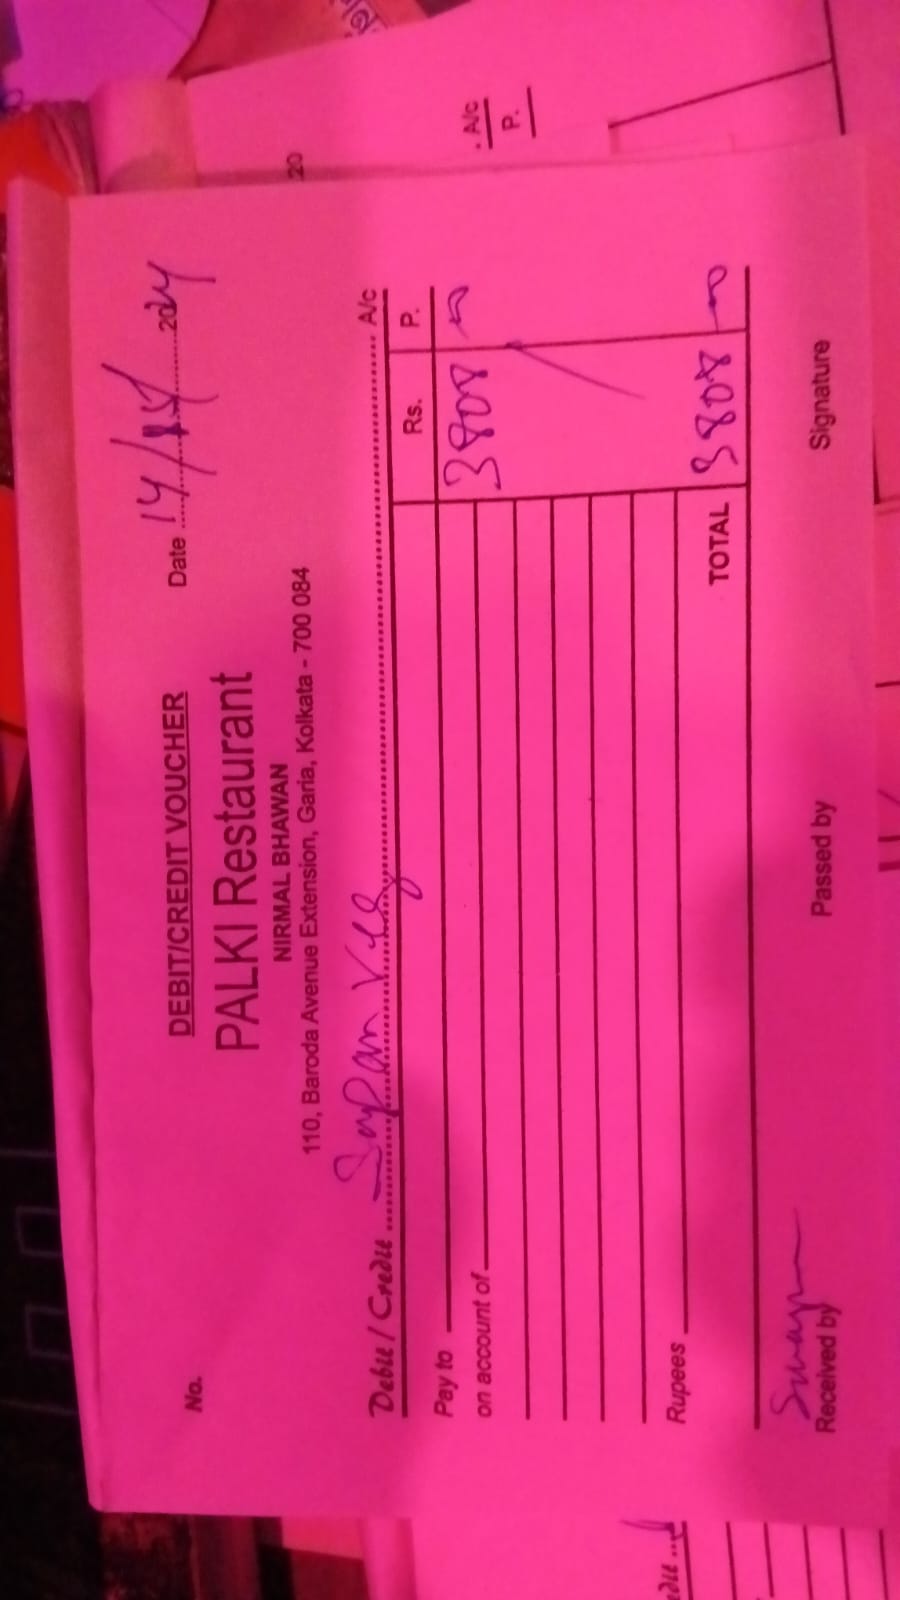 DEBIT/CREDIT VOUCHER
No.
Date 14/ 2024
PALKI Restaurant
NIRMAL BHAWAN
110, Baroda Avenue Extension, Garia, Kolkata - 700 084
Debit / Credit A/c
Rs. P.
Pay to 3808
on account of
Rupees
TOTAL 3808
Received by Passed by Signature
20
A/c
P.